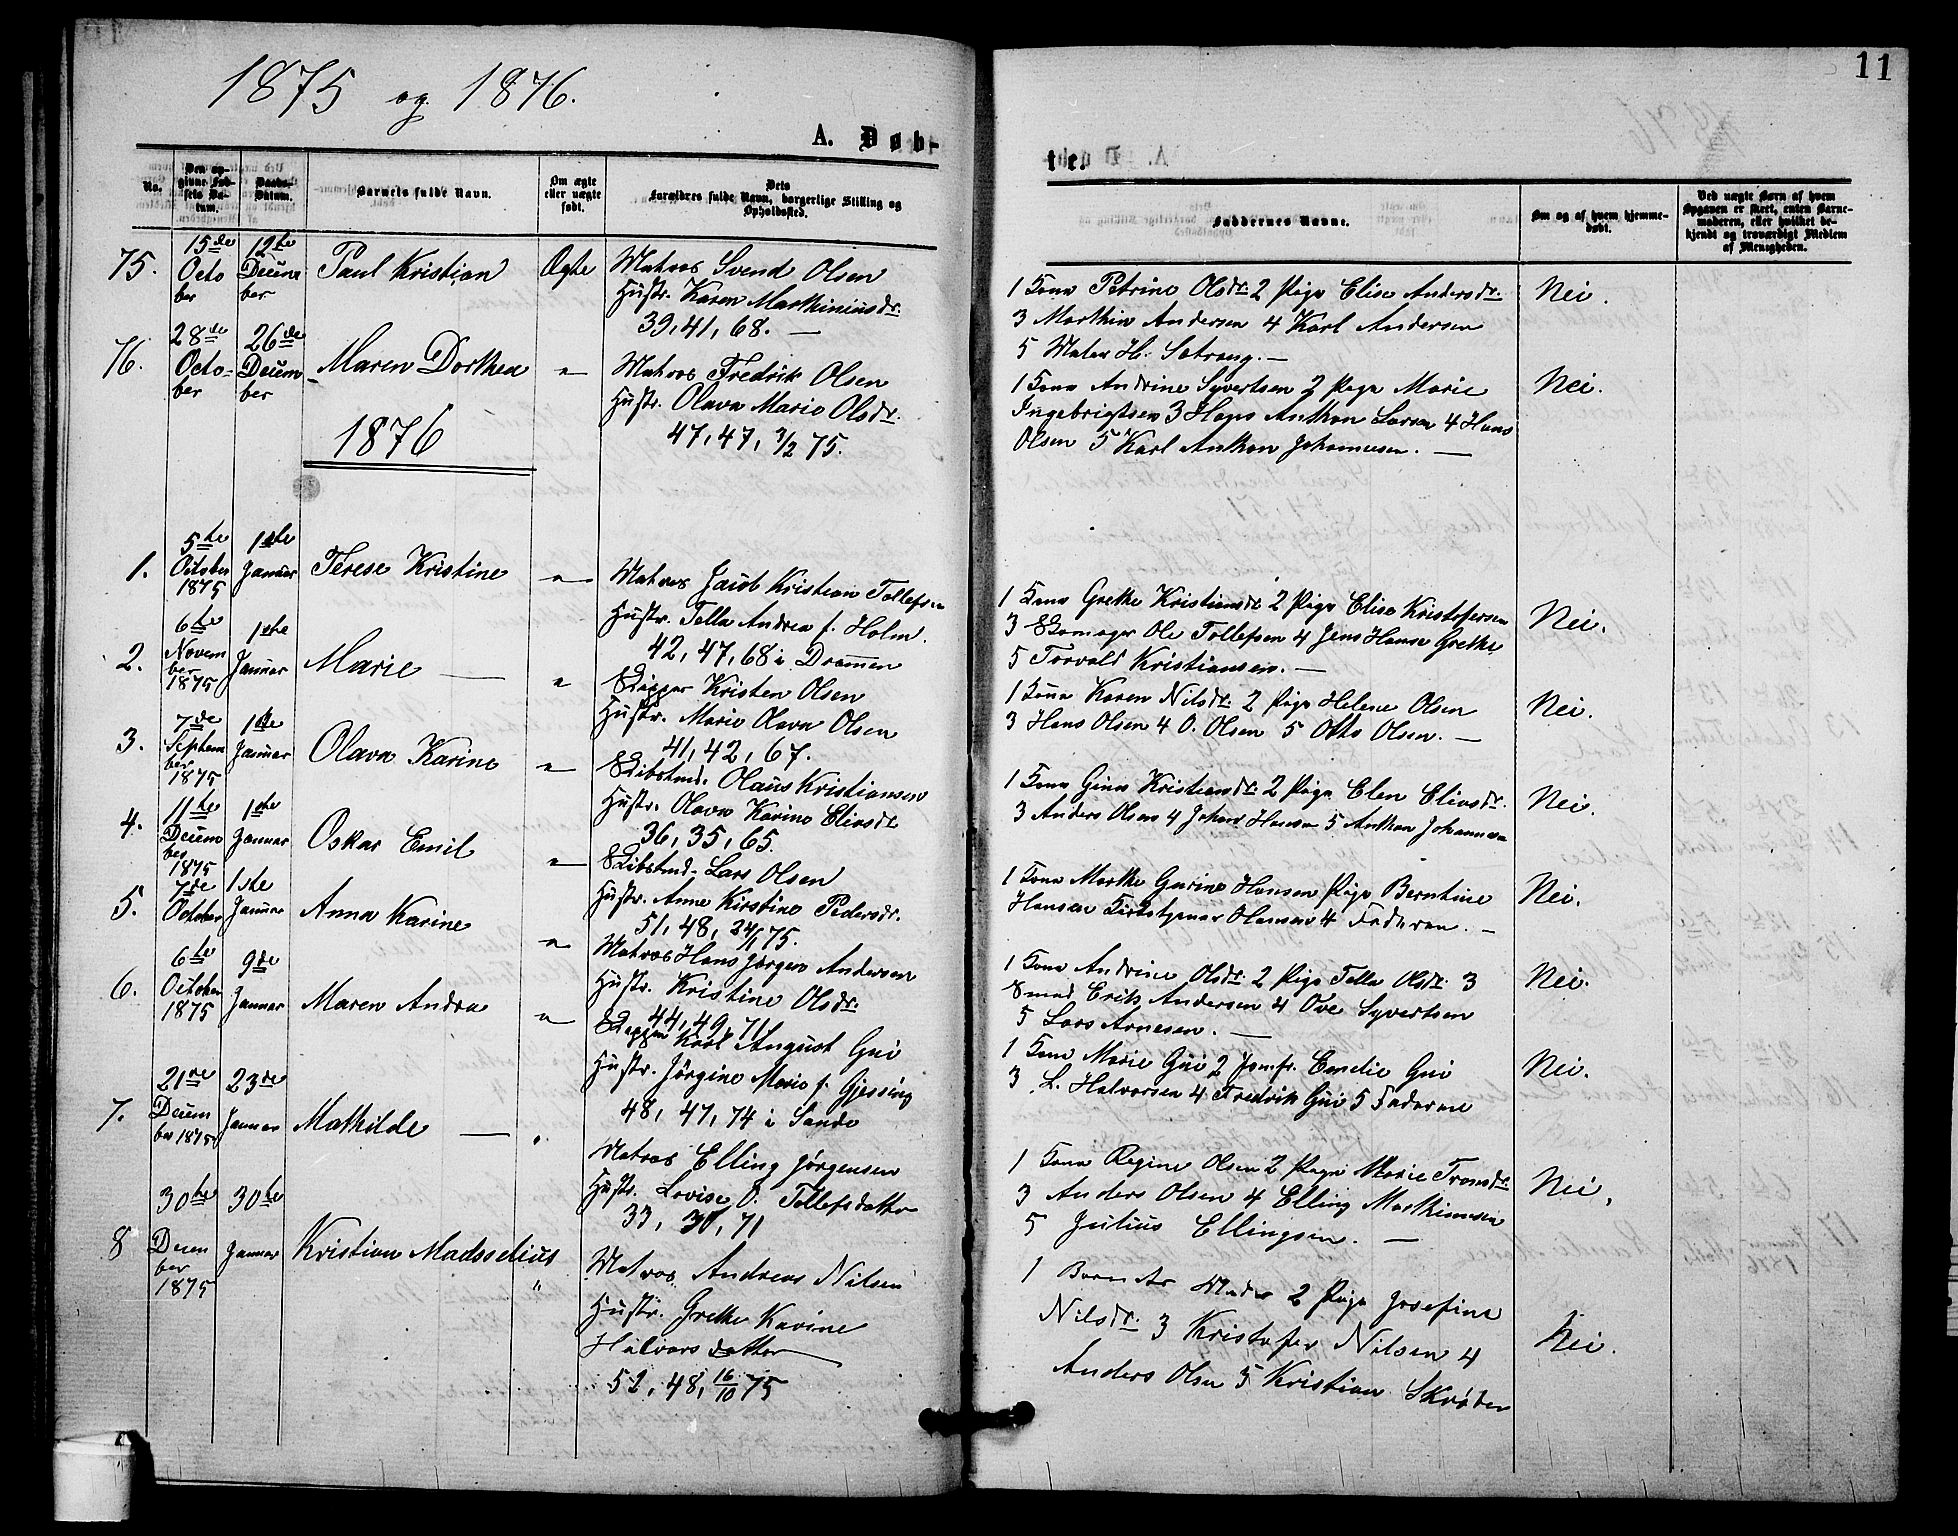 1875 og 1876.
11
A. Døb-
te.
No.
Den op-
givne Fød-
sels Da-
tum.
Daabs-
Datum.
Barnets fulde Navn.
Om ægte
eller uægte
født.
Dets
Forældres fulde Navn, borgerlige Stilling og
Opholdssted.
Faddernes Navne.
Om og af hvem hjemme-
døbt.
Ved uægte Børn af hvem
Opgaven er skeet, enten Barne-
moderen, eller hvilket be-
kjendt og troværdigt Medlem
af Menigheden.
75.
15de
Octo
ber
12te
Decem
ber
Paul Kristian
Ægte
Matros Svend Olsen
Hustr. Karen Marthiniusdr.
39, 41, 68. —
1 Kona Petrine Olsdr. 2 Pige Elise Andersdr.
3 Marthin Andersen 4 Karl Andersen
5 H. Sætrang. —
Nei.
76.
28de
Octo-
ber
26de
Decem
ber
Maren Dorthea
"
Matros Fredrik Olsen
Hustr. Olava Marie Olsdr.
47, 47, 7/2 75.
1 Kona Andrine Syvertsen 2 Pige Marie
Ingebrigtsen 3 Hans Anthon Larsen 4 Hans
Olsen 5 Karl Anthon Johannesen. —
Nei.
1876
1.
5te
October
1875
1ste
Januar
Terese Kristine
"
Matros Jacob Kristian Tollefsen
Hustr. Tella Andrea f. Holm.
42, 47, 68 i Drammen
1 Kona Grethe Kristiansdr. 2 Pige Elise Kristofersen
3 Skomager Ole Tollefsen 4 Jens Hansen Grethe
5 Torvald Kristiansen. —
Nei.
2.
6te
Novem
ber
1875
1ste
Januar
Marie —
"
Skipper Kristen Olsen
Hustr. Marie Olava Olsen
41, 42, 67.
1 Kona Karen Nilsdr. 2 Pige Helene Olsen
3 Hans Olsen 4 O. Olsen 5 Otto Olsen. —
Nei.
3.
7de
Septem
ber
1875
1ste
Januar
Olava Karine
"
Skibstmd. Olaus Kristiansen
Hustr. Olava Karine Eliasdr.
36, 35, 65.
1 Kona Gina Kristiansdr. 2 Pige Elen Eliasdr.
3 Anders Olsen 4 Johan Hansen 5 Anthon Johannesen
Nei.
4.
11te
Decem
ber
1875
1ste
Januar
Oskar Emil
"
Skibstmd. Lars Olsen
Hustr. Anne Kirstine Pedersdr.
51, 48, 24/1 75.
1 Kona Marthe Gurine Hansen Pige Berntine
Hansen Kirketjener Hansen 4 Faderen. —
Nei.
5.
7de
October
1ste
Januar
Anna Karine
"
Matros Hans Jørgen Andersen
Hustr. Kristine Olsdr.
44, 49, 71
1 Kona Andrine Olsdr. 2 Pige Tella Olsdr. 3
Smed Erik Andersen 4 Ove Syvertsen
5 Lars Arnesen. —
Nei.
6.
6te
October
1875
9de
Januar
Maren Andra
"
Skipper Karl August Gui
Hustr. Jörgine Marie f. Gjessing
48, 47, 74 i Sande
1 Kona Marie Gui 2 Jomfr. Emelie Gui
3 L. Halvorsen 4 Fredrik Gui 5 Faderne
Nei.
7.
21de
Decem
ber 1875
23de
Januar
Mathilde —
"
Matros Elling Jørgensen
Hustr. Lovise O. Tollefsdatter
33, 30, 71
1 Kona Regine Olsen 2 Pige Marie Tronsdr.
3 Anders Olsen 4 Elling Marthinsen
5 Julius Ellingsen. —
Nei.
8
30te
Decem
ber
1875
30te
Januar
Kristian Madsselius
"
Matros Andreas Nilsen
Hustr. Grethe Karine
Halvorsdatter
52, 48, 16/10 75
1 Barnets Moder 2 Pige Josefine
Nilsdr. 3 Kristofer Nilsen 4
Anders Olsen 5 Kristian Skrøder
Nei.